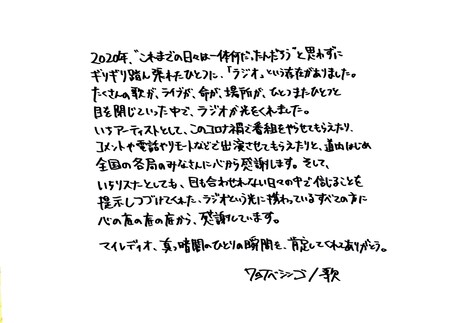 2020年、"これまでの日々は一体何だったんだろう"と思わずに
ギリギリ踏ん張れたひとつに、「ラジオ」という存在がありました。
たくさんの歌が、ライブが、命が、場所が、ひとつまたひとつと
目を閉じていった中で、ラジオが光をくれました。
いちアーティストとして、このコロナ禍で番組をやらせてもらえたり、
コメントや電話やリモートなどで出演させてもらえたりと、道内はじめ
全国の各局のみなさんに心から感謝します。そして、
いちリスナーとしても、目も合わせれない日々の中で信じることを
提示しつづけてくれた、ラジオという光に携わっているすべての方に
心の底の底の底から、感謝しています。
マイレディオ、真っ暗闇のひとりの瞬間を、肯定してくれてありがとう。
ワタナベシンゴ/歌